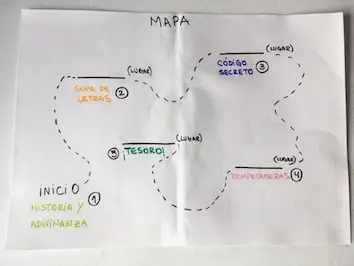 MAPA
(LUGAR)
SOPA DE
LETRAS
2
(LUGAR)
CÓDIGO
SECRETO
3
(LUGAR)
5
¡TESORO!
(LUGAR)
ROMPECABEZAS
4
INICIO
1
HISTORIA Y
ADIVINANZA